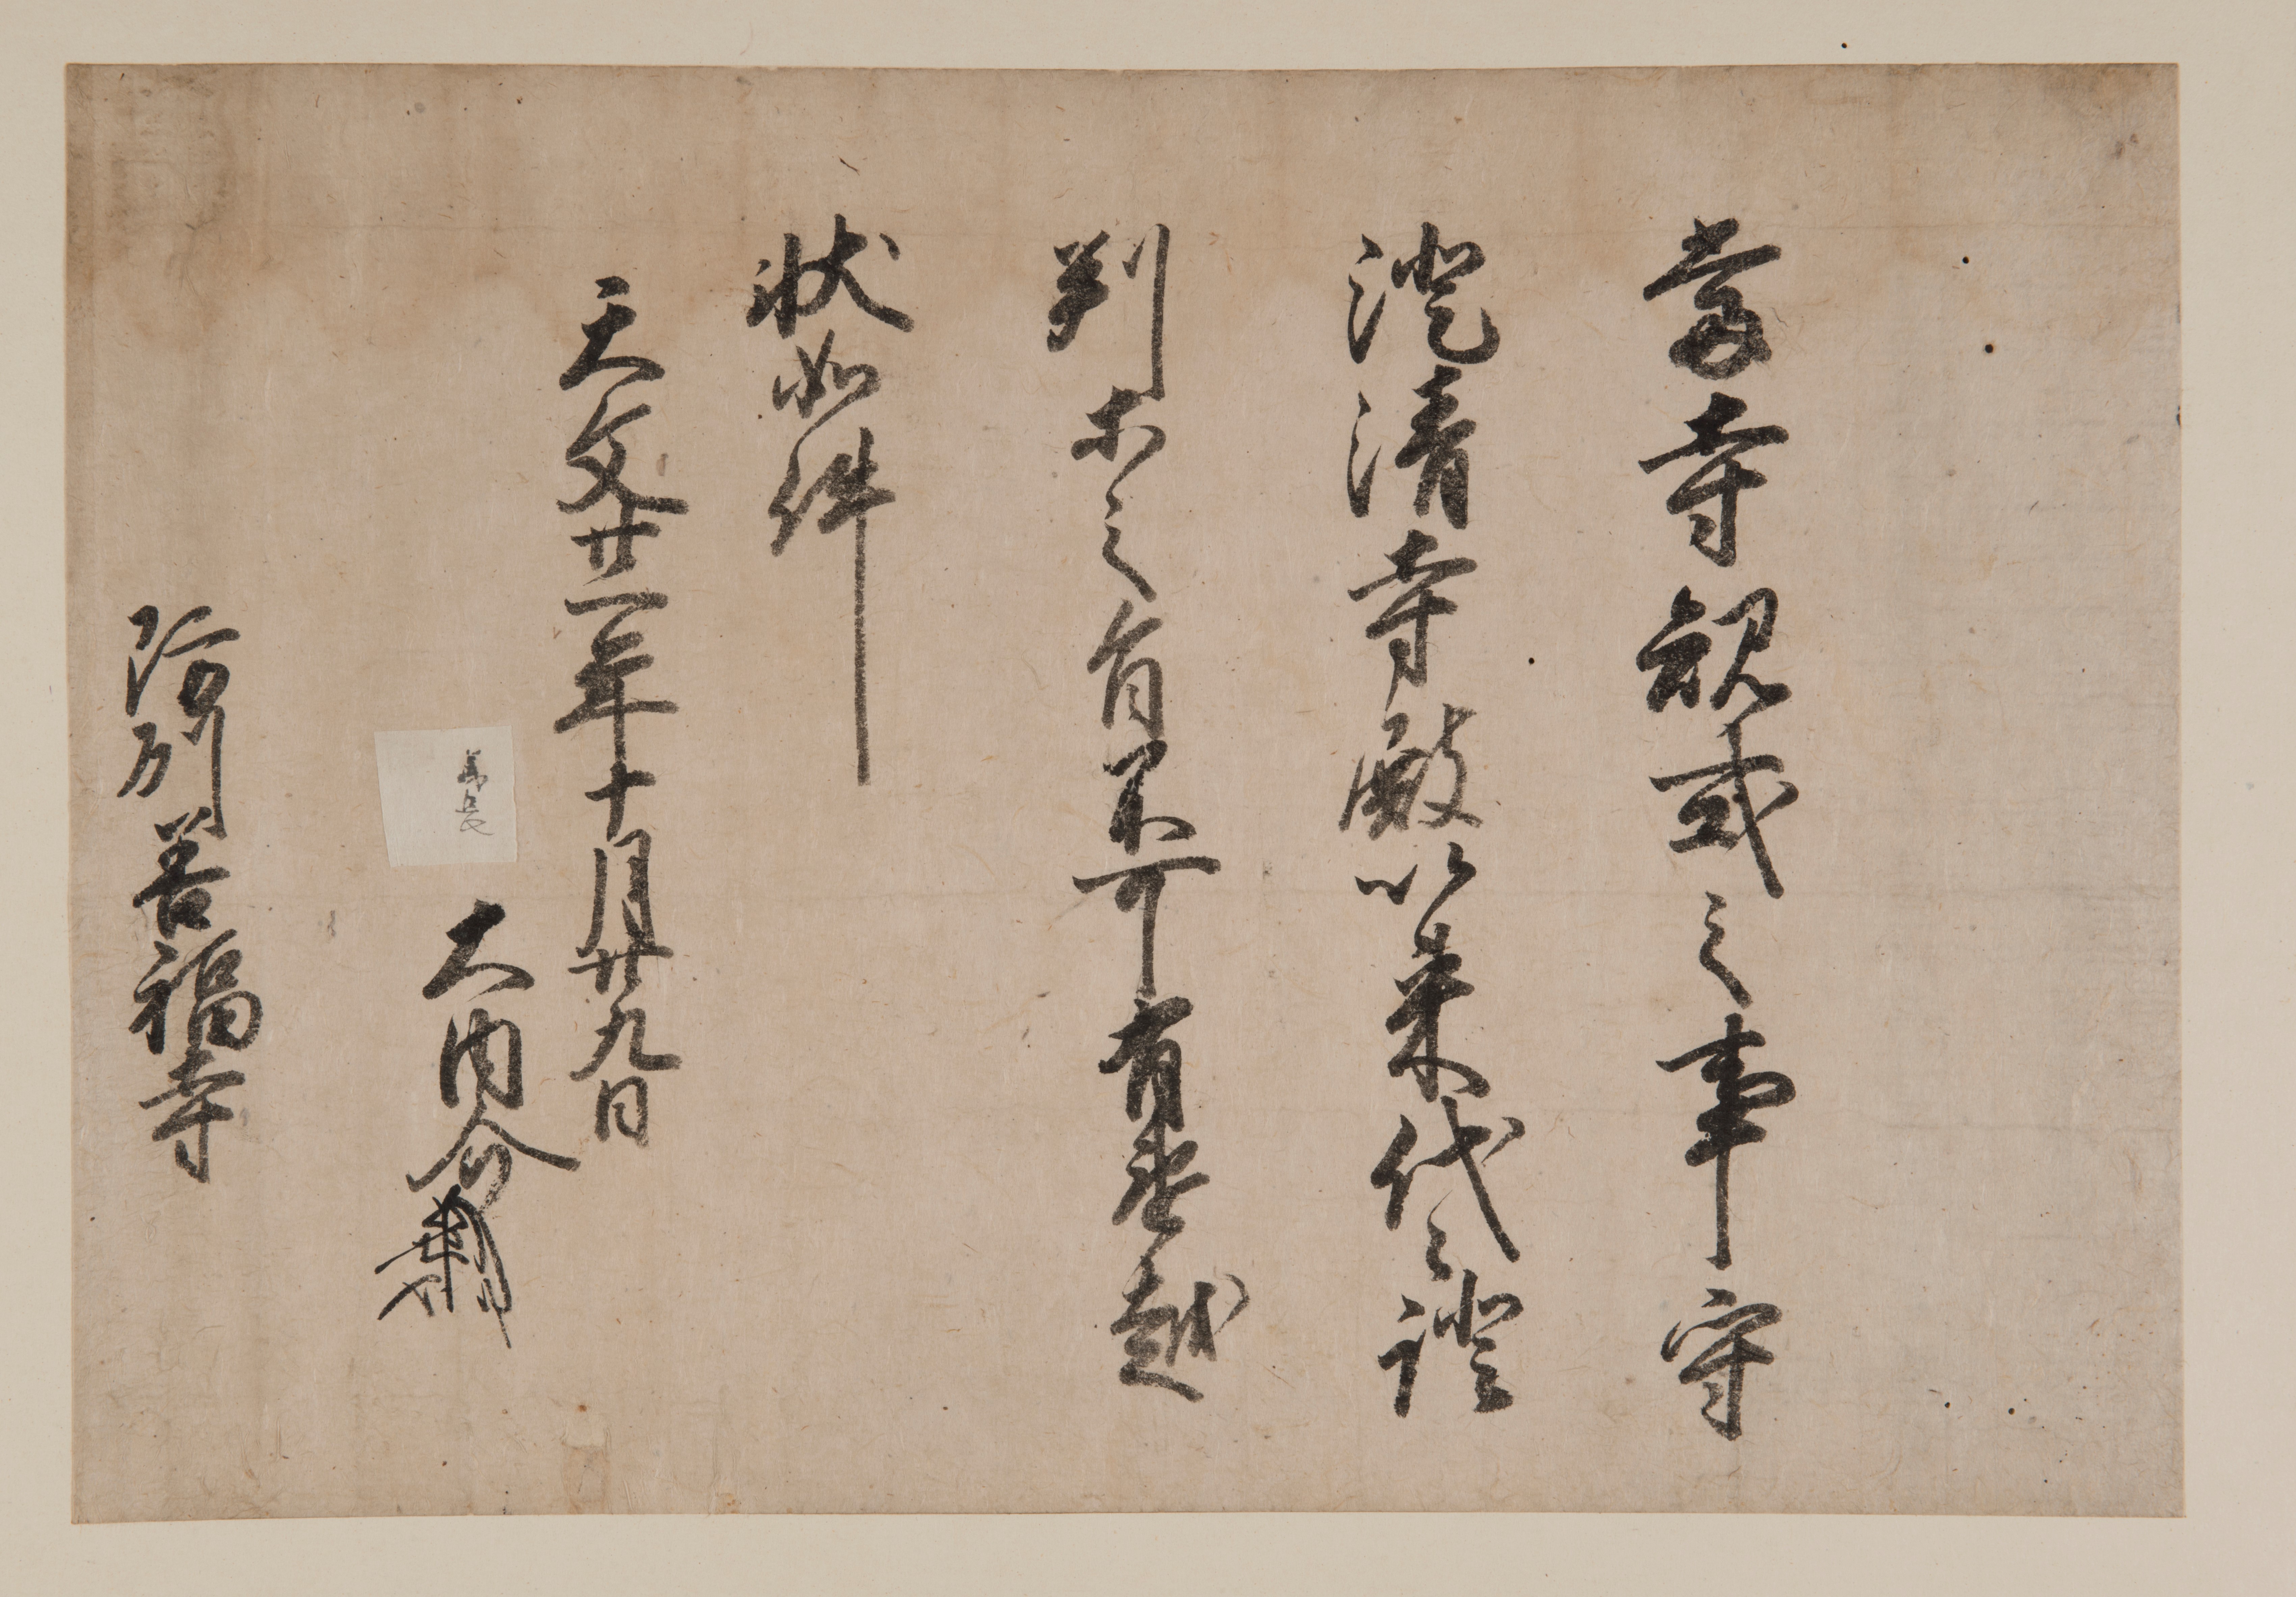 當寺規式之事守
澄清寺殿以来代々證
判等之旨不可有違越
状如件
天文廿二年十月廿九日
義長
大内介
防州善福寺